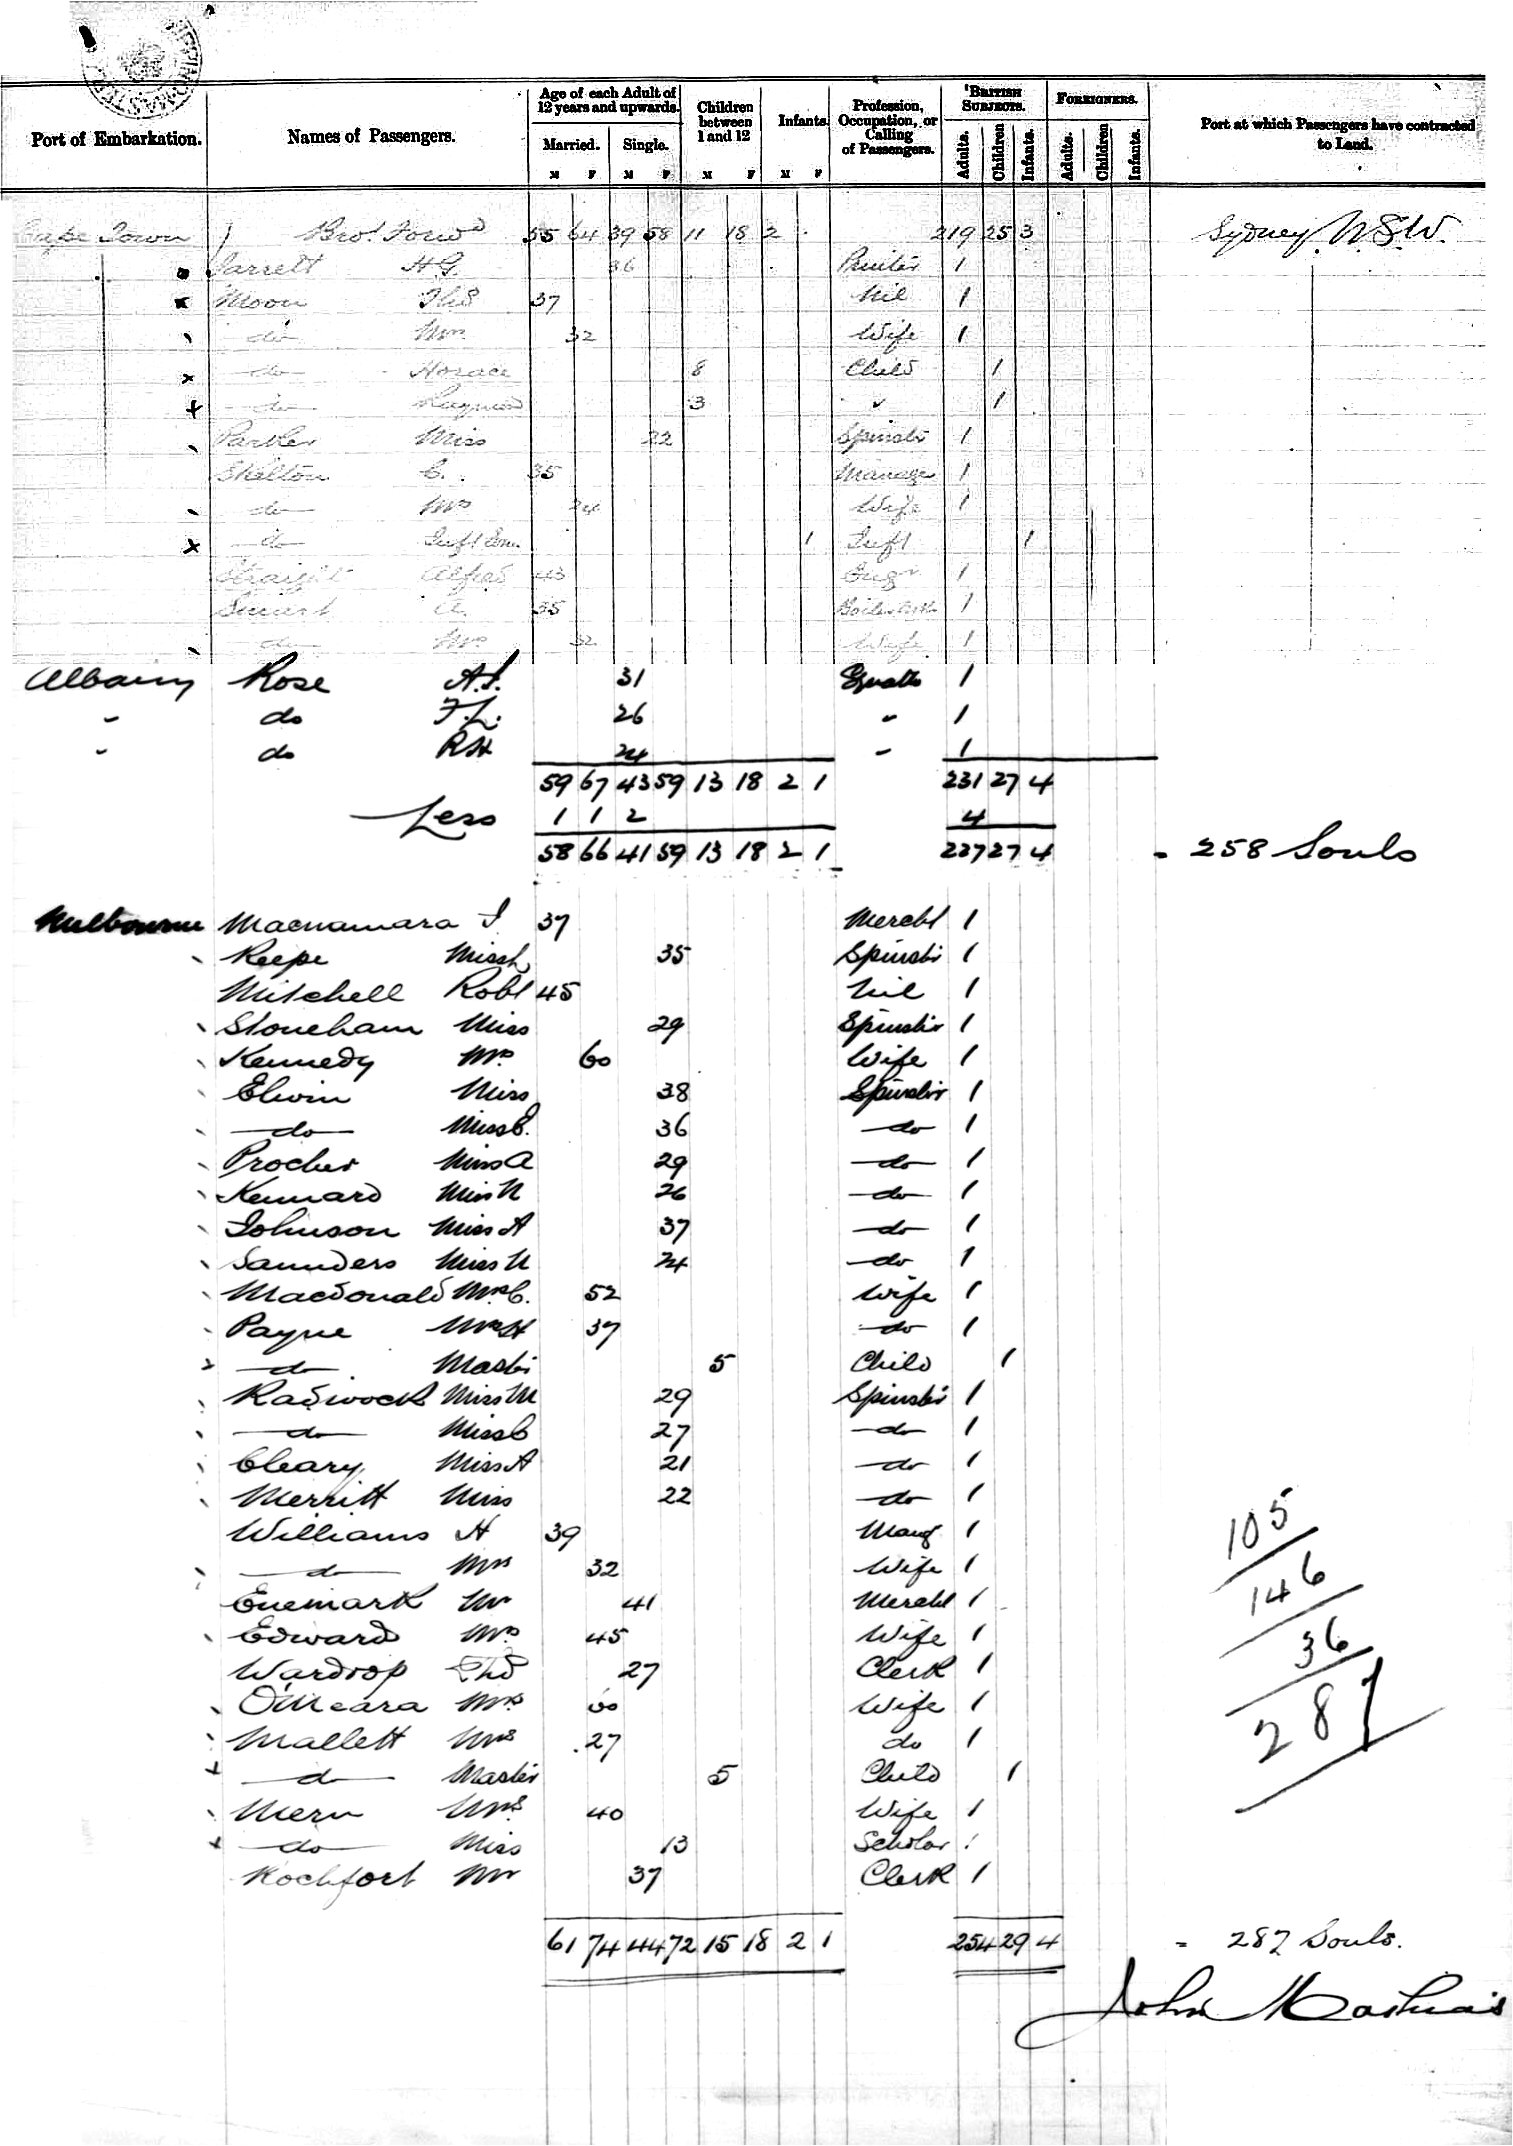 Port of Embarkation. Names of Passengers. Age of each Adult of 12 years and upwards. Married. Single. M F M F Children between 1 and 12 M F Infants. M F Profession, Occupation, or Calling of Passengers. BRITISH SUBJECTS. Adults. Children Infants. FOREIGNERS. Adults. Children Infants. Port at which Passengers have contracted to Land.
Cape Town Brot. Forwd 55 64 39 58 11 18 2 219 25 3 Sydney. N.S.W.
Jarrett H G 36 1
Moon Thos 37 Nil 1
do Mrs 32 Wife 1
do Horace 8 Child 1
do 3 " 1
Parker Miss 22 Spinstr 1
Skelton C. 35 Manager 1
do Mrs 24 Wife 1
do Inft 1 Inft 1
Straight Alfred 43 Engr 1
Smart A. 35 1
do Mrs 32 Wife 1
Albany Rose A.J. 31 1
" do F.L. 26 " 1
" do RH 24 " 1
59 67 43 59 13 18 2 1 231 27 4
Less 1 1 2 4
58 66 41 59 13 18 2 1 227 27 4 = 258 Souls
Melbourne Macnamara J 37 Mercht 1
Reepe Miss 35 Spinstr 1
Mitchell Robt 45 Nil 1
Stoneham Miss 29 Spinstr 1
Kennedy Mrs 60 Wife 1
Elwin Miss 38 Spinstr 1
do Miss E. 36 do 1
Procter Miss A 29 do 1
Kennard Miss N 26 do 1
Johnson Miss A 37 do 1
Saunders Miss N 24 do 1
Macdonald Mrs C. 52 Wife 1
Payne Mrs H 37 do 1
do Mastr 5 Child 1
Radwock Miss M 29 Spinstr 1
do Miss C 27 do 1
Cleary Miss A 21 do 1
Merritt Miss 22 do 1
Williams H 39 Mang 1
do Mrs 32 Wife 1
Enemark Mr 41 Mercht 1
Edward Mrs 45 Wife 1
Wardrop Thos 27 Clerk 1
O'Meara Mrs 60 Wife 1
Mallett Mrs 27 do 1
do Master 5 Child 1
Mern Mrs 40 Wife 1
do Miss 13 Scholar 1
Rochfort Mr 37 Clerk 1
105
146
36
287
61 74 44 72 15 18 2 1 254 29 4 = 287 Souls.
John